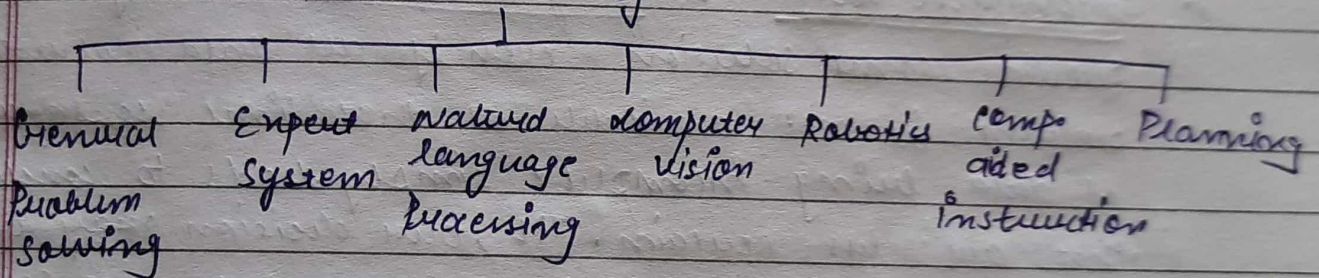 General
Problem
solving
Expert
system
Natural
language
Processing
Computer
vision
Robotics
comp.
aided
instruction
Planning